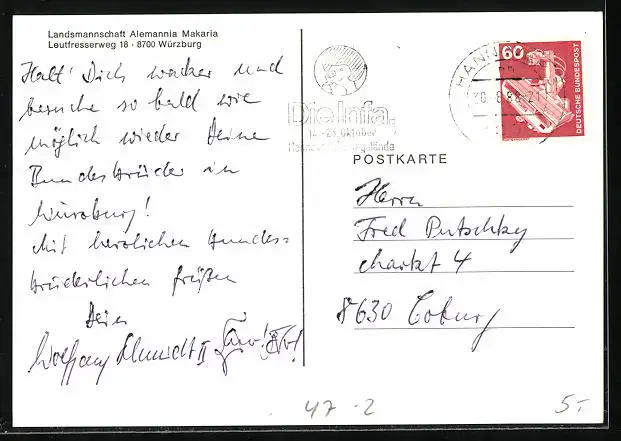 Landsmannschaft Alemannia Makaria
Leutfresserweg 18 · 8700 Würzburg
Halt' Dich wacker und
besuche so bald wie
möglich wieder Deine
Bundesbrüder in
Würzburg!
Mit herzlichen bundes-
brüderlichen Grüßen
Dein
Wolfgang Schmidt II
Die Infa.
Oktober
60
DEUTSCHE BUNDESPOST
POSTKARTE
Herrn
Fred Putschky
Markt 4
8630 Coburg
47-2
5.-